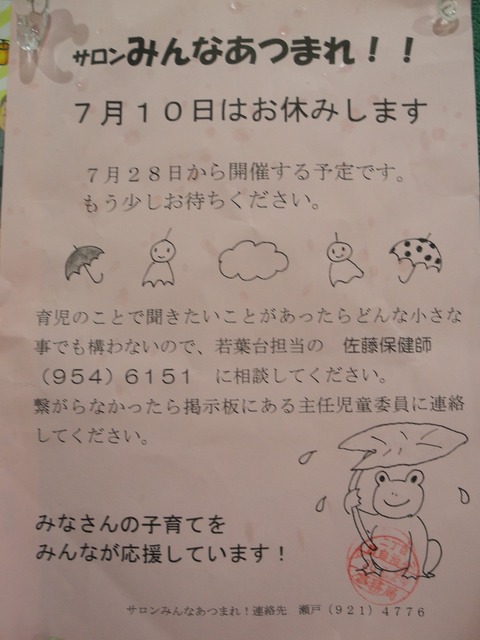 サロンみんなあつまれ！！
７月１０日はお休みします
７月２８日から開催する予定です。
もう少しお待ちください。
育児のことで聞きたいことがあったらどんな小さな
事でも構わないので、若葉台担当の　佐藤保健師
（９５４）６１５１　に相談してください。
繋がらなかったら掲示板にある主任児童委員に連絡
してください。
みなさんの子育てを
みんなが応援しています！
サロンみんなあつまれ！連絡先　瀬戸（９２１）４７７６